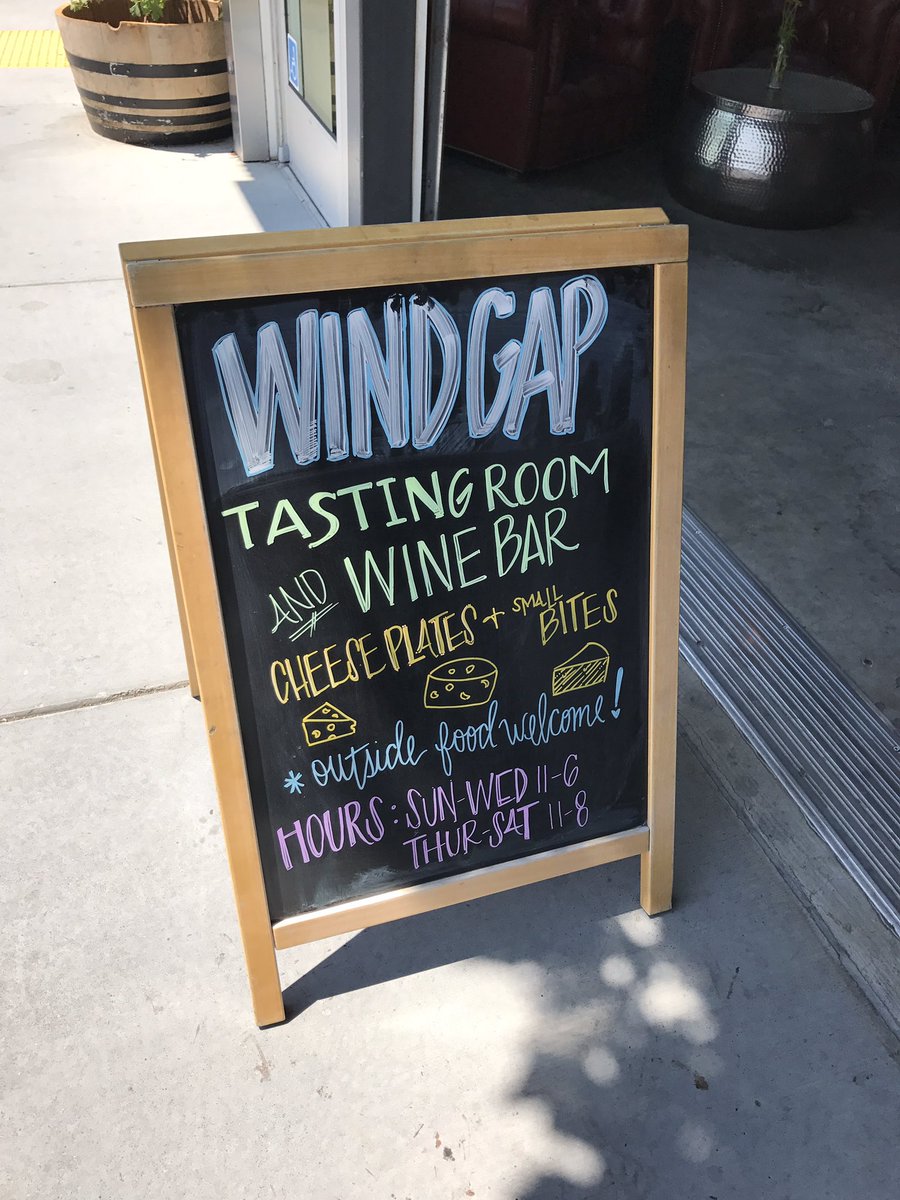 WIND GAP
TASTING ROOM
AND WINE BAR
CHEESE PLATES + SMALL BITES
* outside food welcome!
HOURS: SUN-WED 11-6
THUR-SAT 11-8